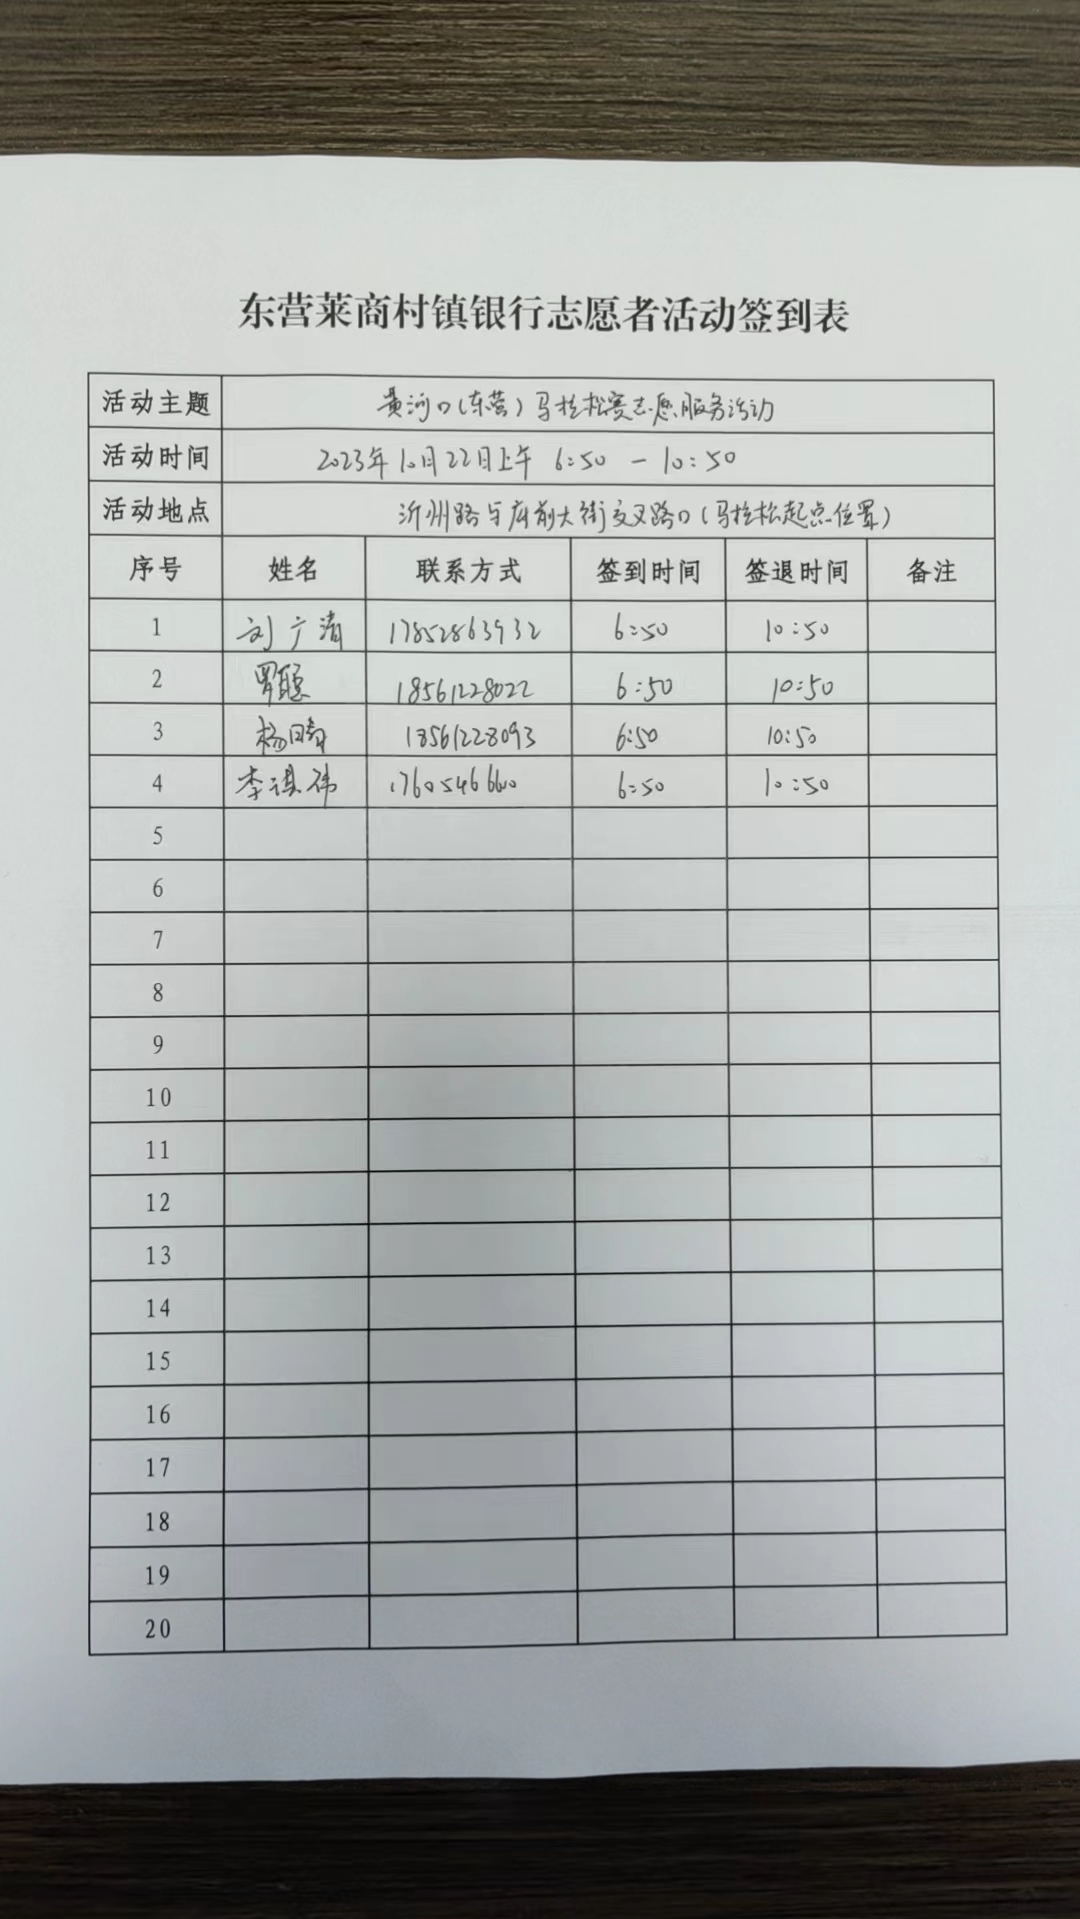 东营莱商村镇银行志愿者活动签到表
活动主题 黄河口(东营)马拉松赛志愿服务活动
活动时间 2023年10月22日上午 6:50 — 10:50
活动地点 沂州路与府前大街交叉路口(马拉松起点位置)
序号 姓名 联系方式 签到时间 签退时间 备注
1 刘广清 17852863932 6:50 10:50
2 18561228022 6:50 10:50
3 杨晴 18561228093 6:50 10:50
4 李淇伟 6:50 10:50
5
6
7
8
9
10
11
12
13
14
15
16
17
18
19
20